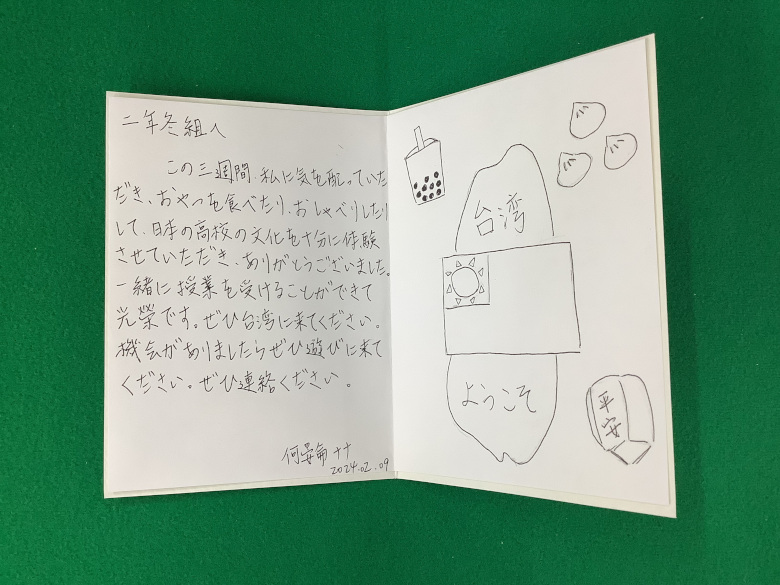 二年冬組へ
この三週間、私に気を配っていた
だき、おやつを食べたり、おしゃべりしたり
して、日本の高校の文化を十分に体験
させていただき、ありがとうございました。
一緒に授業を受けることができて
光榮です。ぜひ台湾に来てください。
機会がありましたらぜひ遊びに来て
ください。ぜひ連絡ください。
何晏侖
2024.02.09
台湾
ようこそ
平安